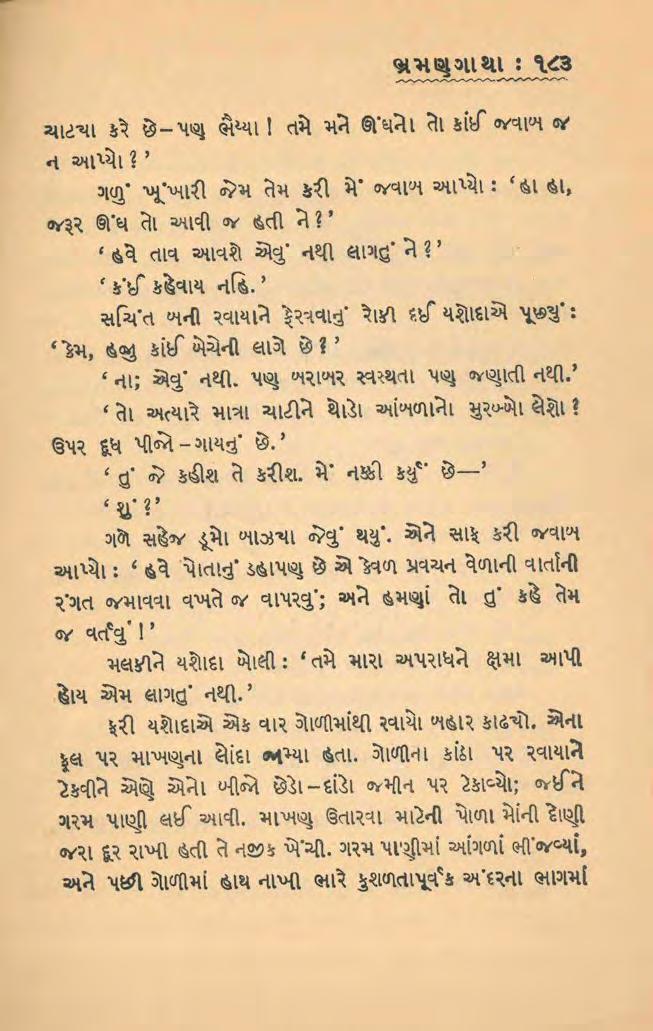 ભ્રમણગાથા : ૧૮૩
ચાટ્યા કરે છે–પણ ભૈય્યા ! તમે મને ઊંઘનો તો કાંઈ જવાબ જ
ન આપ્યો ?’
ગળું ખૂંખારી જેમ તેમ કરી મેં જવાબ આપ્યો : ‘હા હા,
જરૂર ઊંઘ તો આવી જ હતી ને ?’
‘હવે તાવ આવશે એવું નથી લાગતું ને ?’
‘કંઈ કહેવાય નહિ.’
સચિંત બની રવાયાને ફેરવવાનું રોકી દઈ યશોદાએ પૂછ્યું :
‘કેમ, હજુ કાંઈ બેચેની લાગે છે ?’
‘ના; એવું નથી. પણ બરાબર સ્વસ્થતા પણ જણાતી નથી.’
‘તો અત્યારે માત્રા ચાટીને થોડો આંબળાનો મુરબ્બો લેશો ?
ઉપર દૂધ પીજો–ગાયનું છે.’
‘તું જે કહીશ તે કરીશ. મેં નક્કી કર્યું છે—’
‘શું ?’
ગળે સહેજ ડૂમો બાઝ્યા જેવું થયું. એને સાફ કરી જવાબ
આપ્યો : ‘હવે પોતાનું ડહાપણ છે એ કેવળ પ્રવચન વેળાની વાર્તાની
રંગત જમાવવા વખતે જ વાપરવું; અને હમણાં તો તું કહે તેમ
જ વર્તવું !’
મલકીને યશોદા બોલી : ‘તમે મારા અપરાધને ક્ષમા આપી
હોય એમ લાગતું નથી.’
ફરી યશોદાએ એક વાર ગોળીમાંથી રવાયો બહાર કાઢ્યો. એના
ફૂલ પર માખણના લોંદા જામ્યા હતા. ગોળીના કાંઠા પર રવાયાને
ટેકવીને એણે એનો બીજો છેડો–દાંડો જમીન પર ટેકાવ્યો; જઈને
ગરમ પાણી લઈ આવી. માખણ ઉતારવા માટેની પોળા મોંની દોણી
જરા દૂર રાખી હતી તે નજીક ખેંચી. ગરમ પાણીમાં આંગળાં ભીંજવ્યાં,
અને પછી ગોળીમાં હાથ નાખી ભારે કુશળતાપૂર્વક અંદરના ભાગમાં